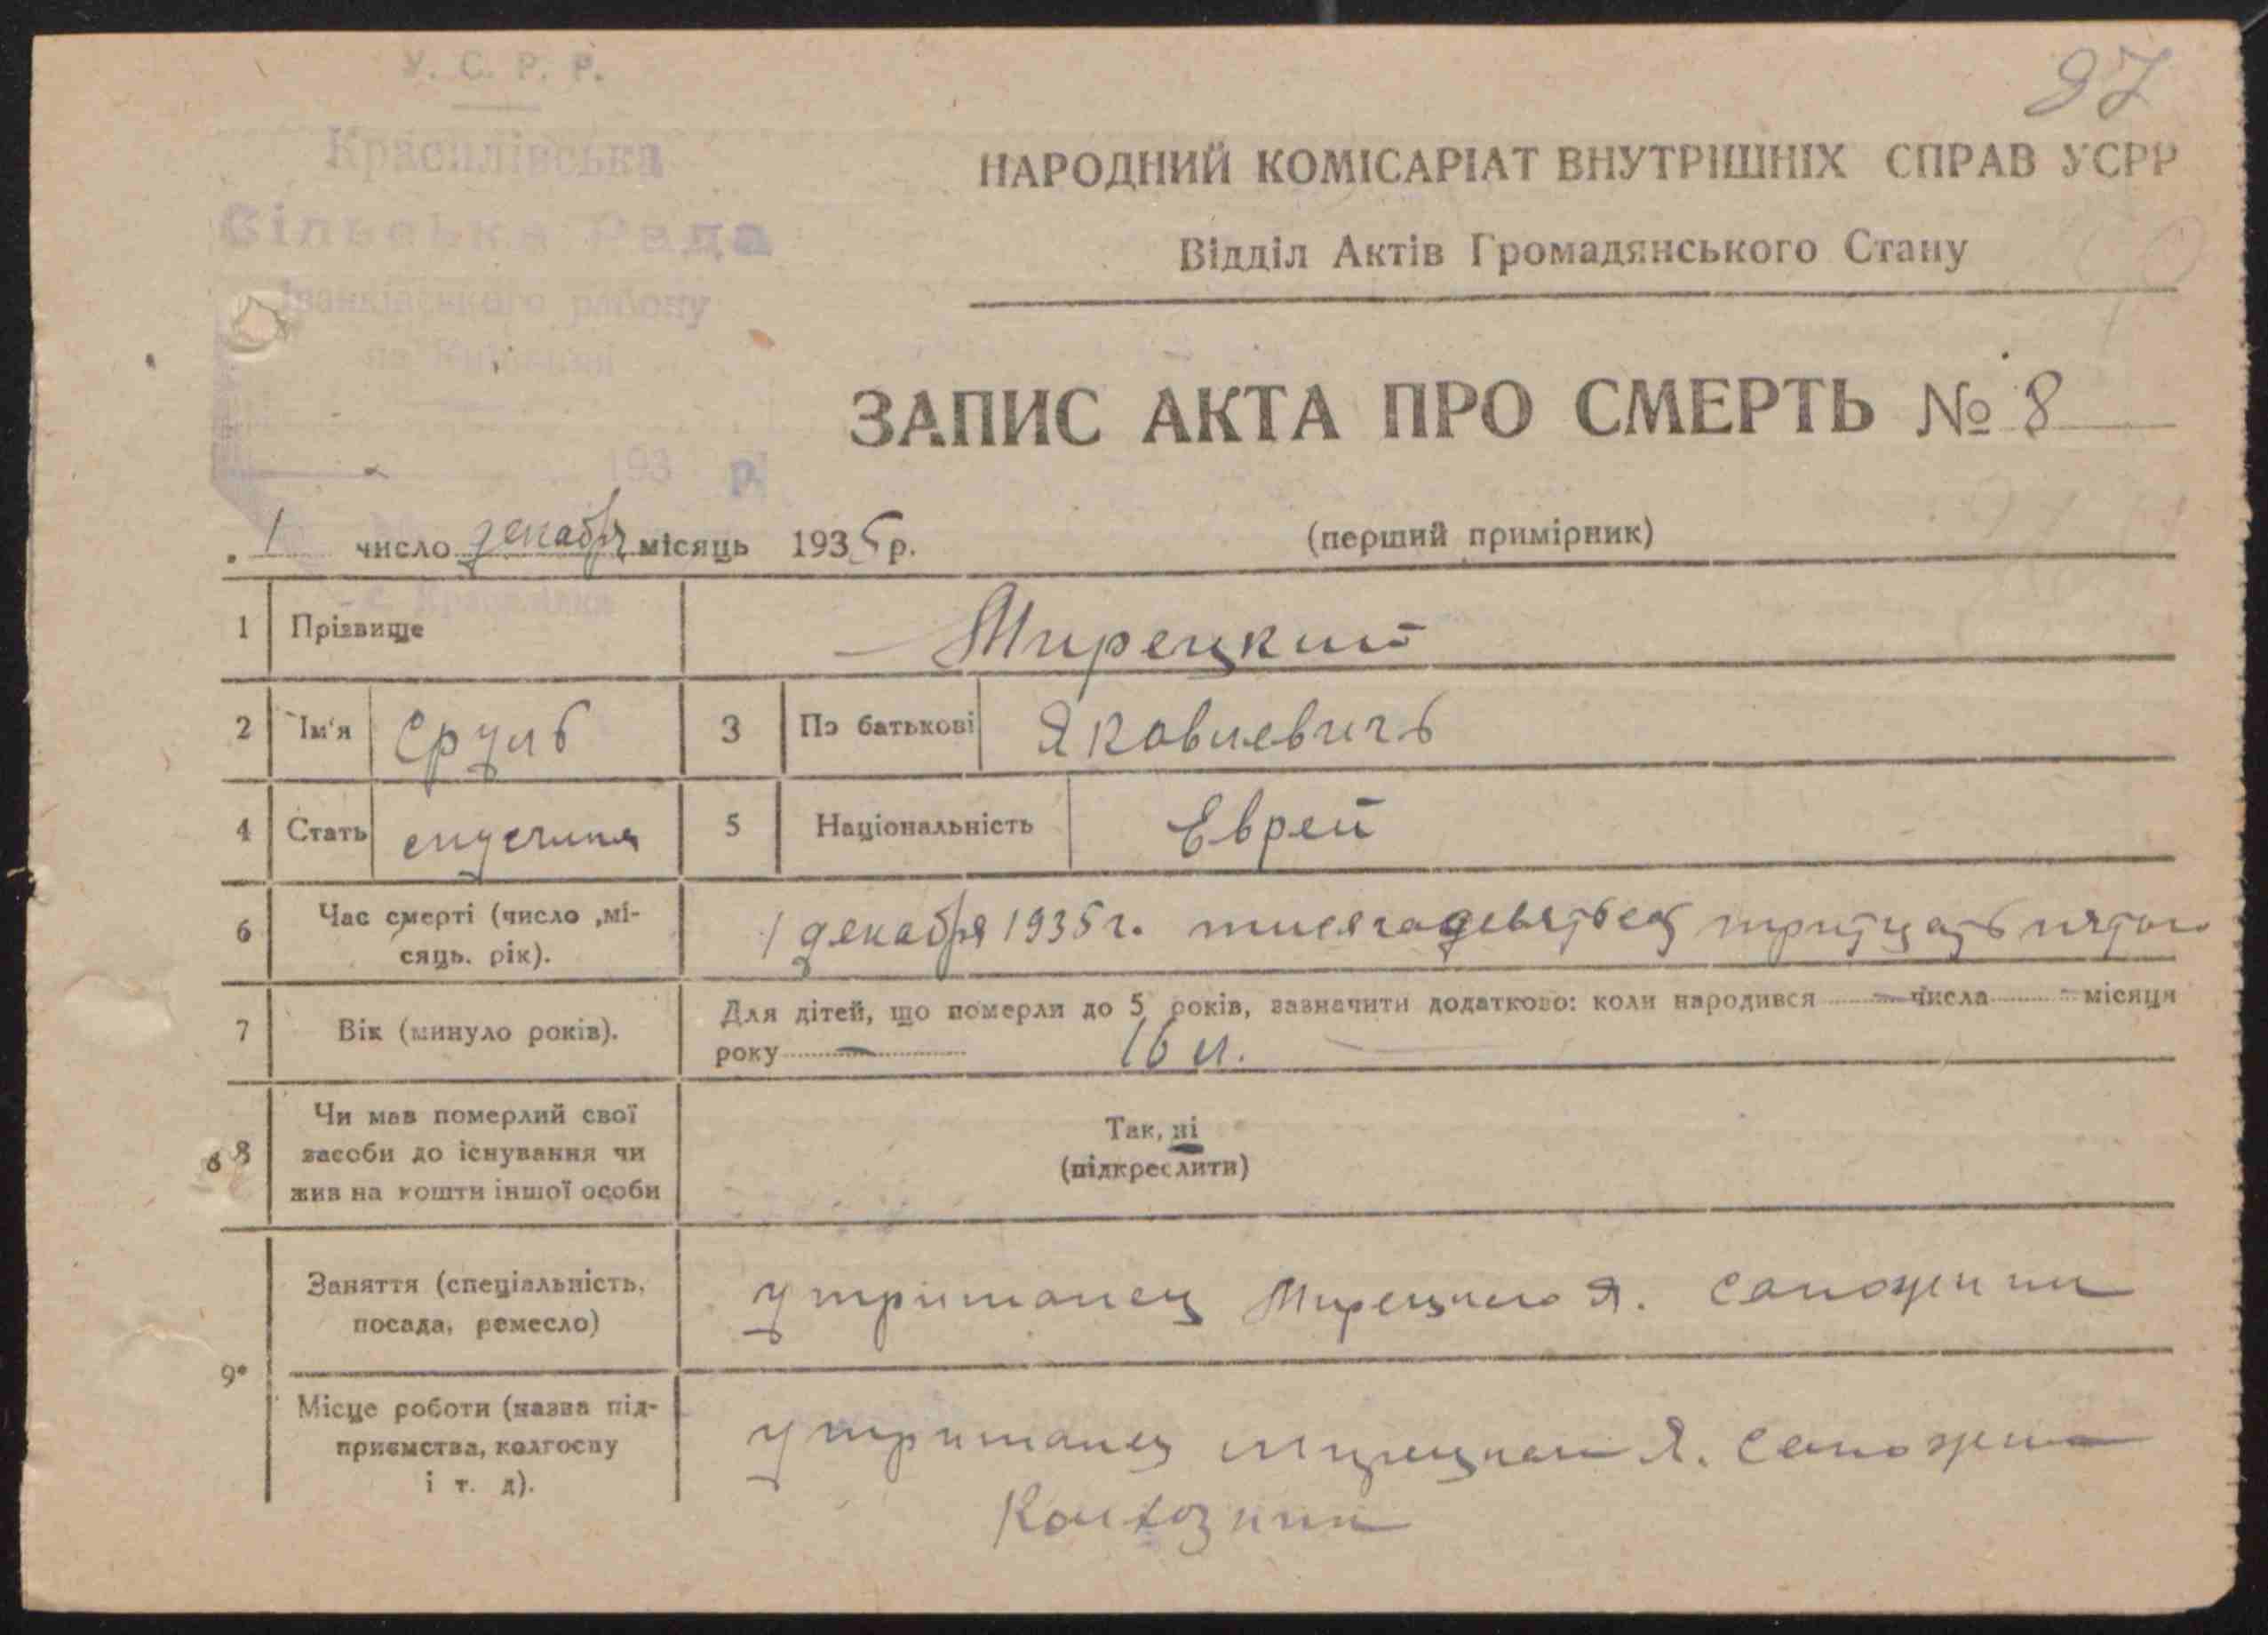 97
У. С. Р. Р.
Красилівська
Сільська Рада
Іванківського району
на Київщині
193 р.
НАРОДНИЙ КОМІСАРІАТ ВНУТРІШНІХ СПРАВ УСРР
Відділ Актів Громадянського Стану
ЗАПИС АКТА ПРО СМЕРТЬ № 8
1 число декабря місяць 1935 р.
(перший примірник)
с. Красилівка
1 Прізвище Мирецкий
2 Ім'я Сруль 3 По батькові Яковлевичь
4 Стать 5 Національність Еврей
6 Час смерті (число, місяць. рік). 1 декабря 1935 г. тисяча девятьсот тритцать пятого
7 Вік (минуло років). Для дітей, що померли до 5 років, зазначити додатково: коли народився — числа — місяця
року — 16 л.
8 Чи мав померлий свої
засоби до існування чи
жив на кошти іншої особи
Так, ні
(підкреслити)
9*
Заняття (спеціальність,
посада, ремесло)
утриманец Мирецкого Я. сапожник
Місце роботи (назва під-
приємства, колгоспу
і т. д).
утриманец Мирецкого Я. сапожник
Колхозник